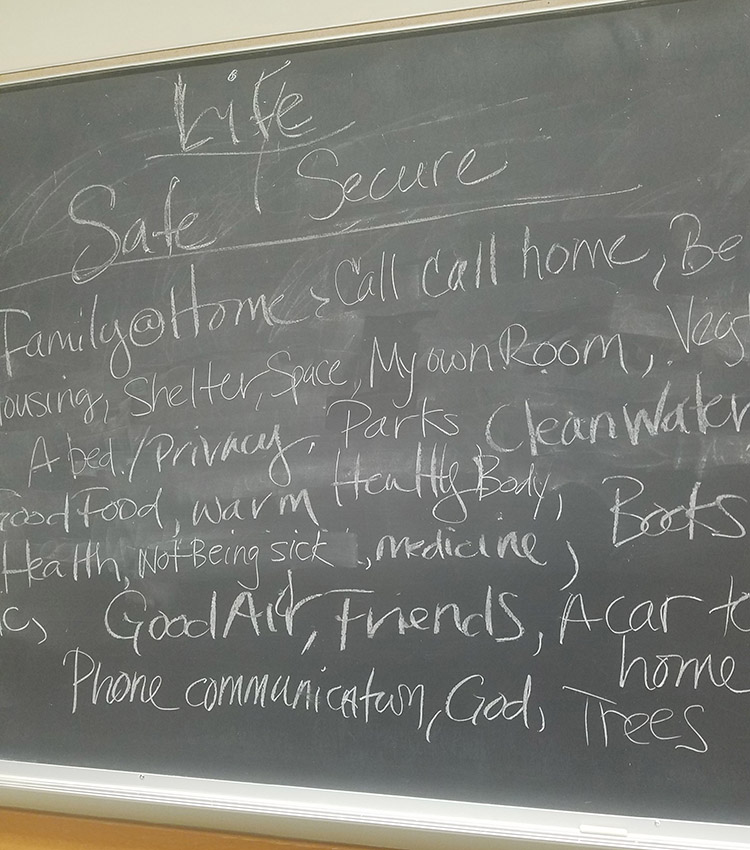 Life
Safe / Secure
Family@Home, Call call home, Be
ousing, Shelter, Space, My own Room, Veg
A bed./Privacy, Parks Clean Water
Good Food, warm Healthy Body, Books
Health, Not Being sick, medicine,
c, Good Air, Friends, A car to
home
Phone communication, God, Trees